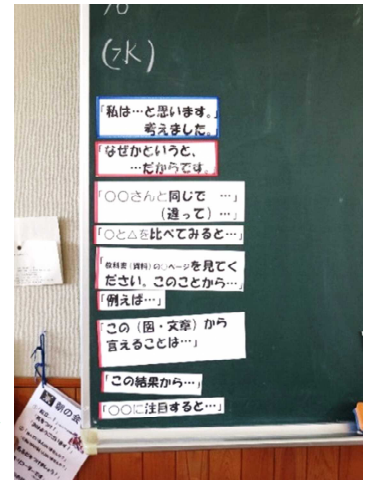 (水)
「私は…と思います。」
考えました。
「なぜかというと、
…だからです。
「○○さんと同じで …」
(違って)…」
「○と△を比べてみると…」
「教科書(資料)の○ページを見てく
ださい。このことから…」
「例えば…」
「この(図・文章)から
言えることは…」
「この結果から…」
「○○に注目すると…」
朝の会